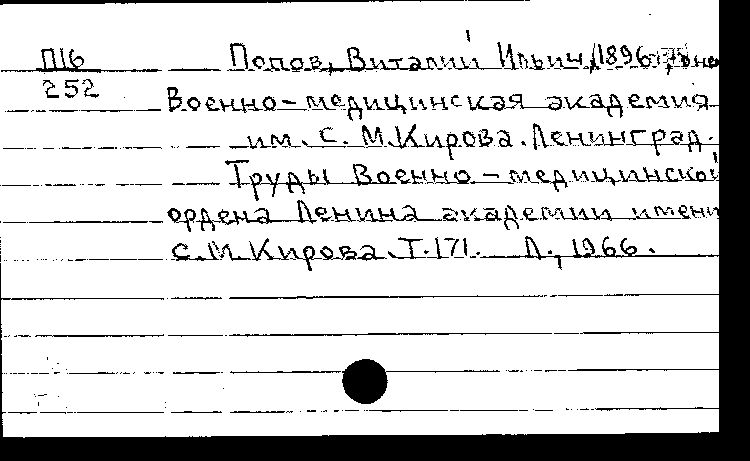 П16
252
Попов, Виталий Ильич, 1896
Военно-медицинская академия
им. С. М. Кирова. Ленинград.
Труды Военно-медицинской
ордена Ленина академии имени
С. М. Кирова. Т. 171. Л., 1966.